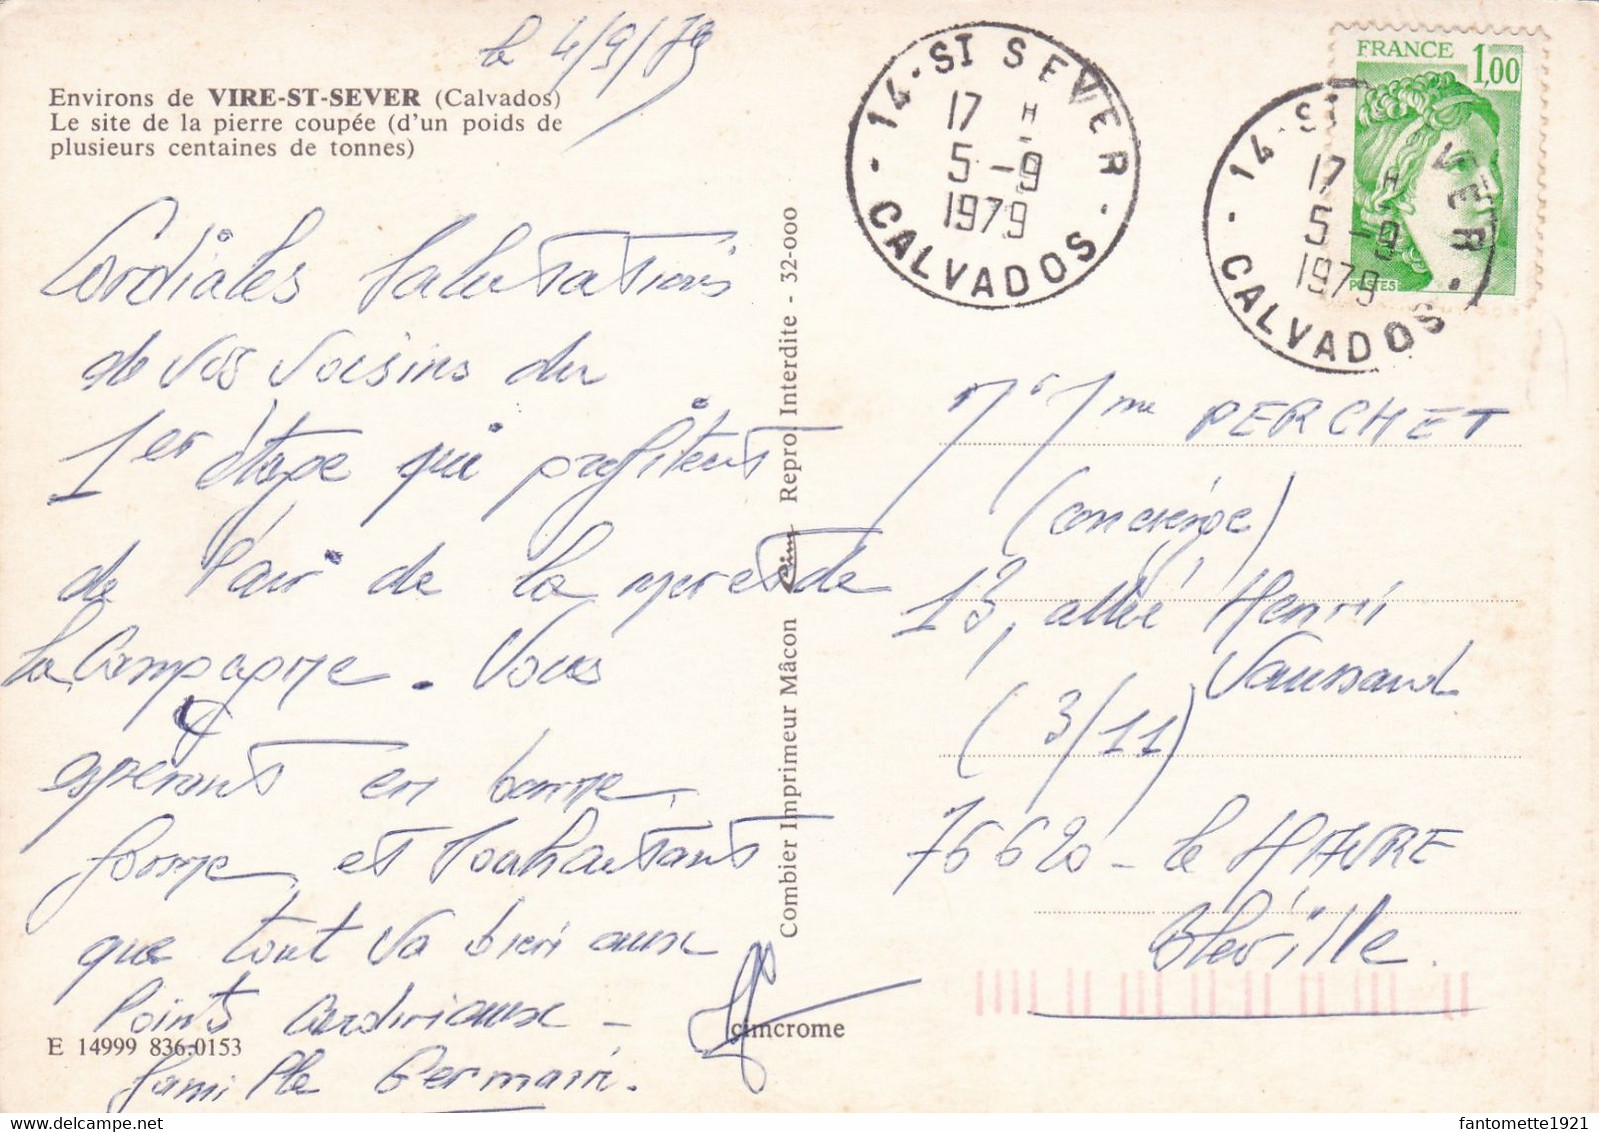 le 4/9/79
Environs de VIRE-ST-SEVER (Calvados)
Le site de la pierre coupée (d'un poids de
plusieurs centaines de tonnes)
Cordiales salutations
de vos voisins du
1er étage qui profitent
de l'air de la mer et de
la Campagne. Vous
espérant en bonne
forme et souhaitant
que tout va bien aux
points cardinaux -
famille Germain.
E 14999 836-0153
cimcrome
Combier Imprimeur Mâcon Cim Repro. Interdite - 32-000
14 - ST SEVER
17 H
5 - 9
1979
CALVADOS
14 - ST SEVER
17 H
5 - 9
1979
CALVADOS
FRANCE 1,00
POSTES
M. Mme PERCHET
(concierge)
13, allée Henri
(3/11)
76620 - le HAVRE
Bléville.
fantomette1921